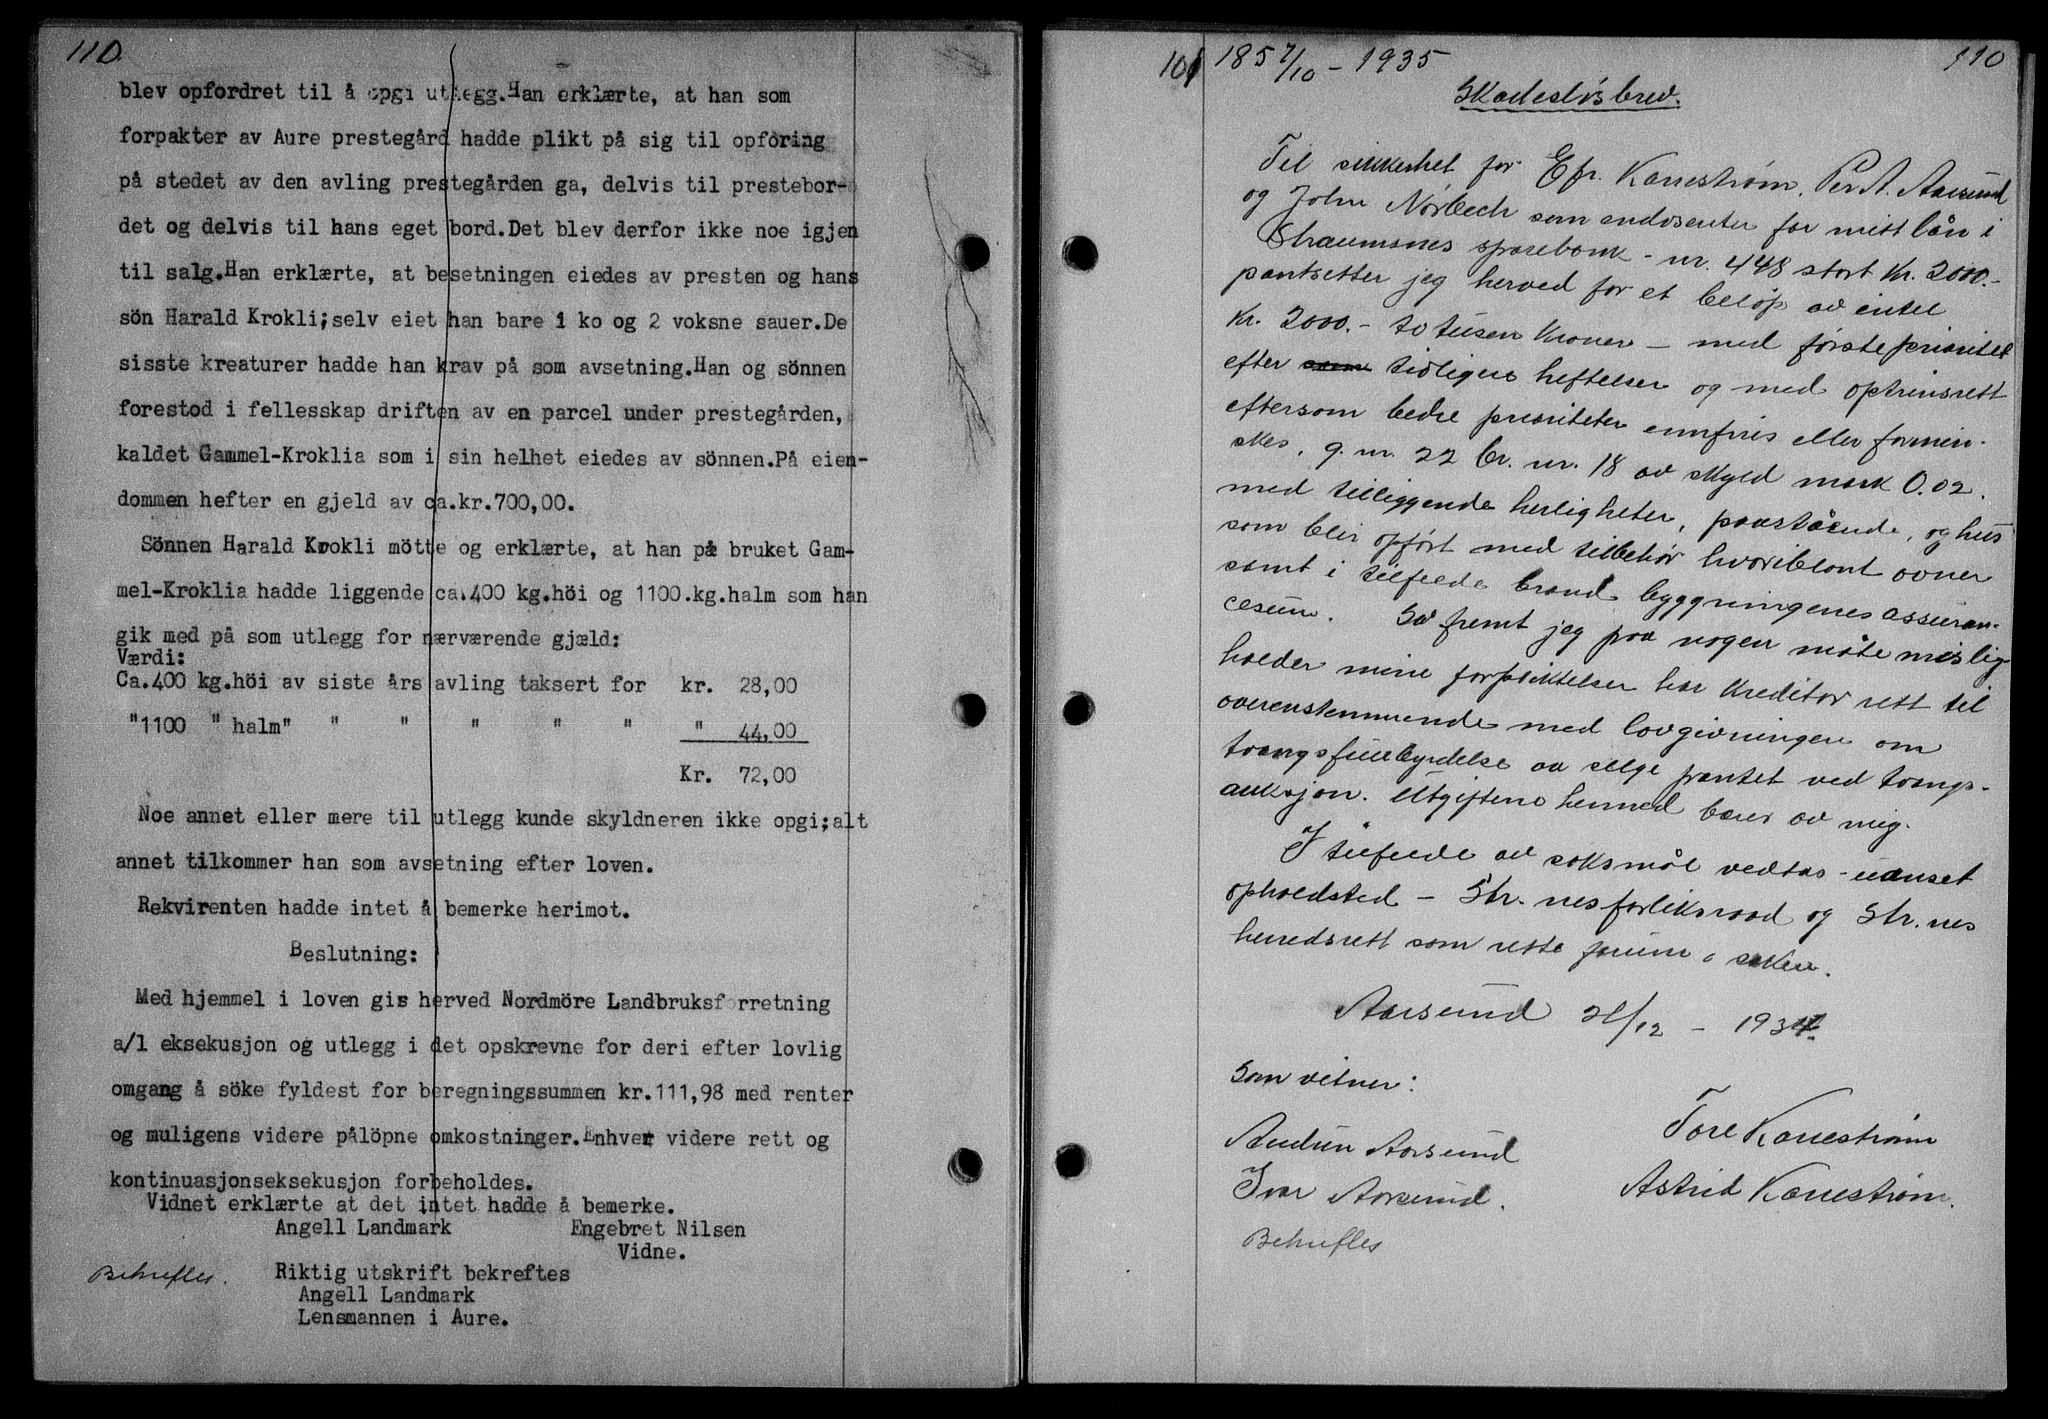 110
blev opfordret til å opgi utlegg.Han erklærte, at han som
forpakter av Aure prestegård hadde plikt på sig til opföring
på stedet av den avling prestegården ga, delvis til prestebor-
det og delvis til hans eget bord.Det blev derfor ikke noe igjen
til salg.Han erklærte, at besetningen eiedes av presten og hans
sön Harald Krokli;selv eiet han bare 1 ko og 2 voksne sauer.De
sisste kreaturer hadde han krav på som avsetning.Han og sönnen
forestod i fellesskap driften av en parcel under prestegården,
kaldet Gammel-Kroklia som i sin helhet eiedes av sönnen.På eien-
dommen hefter en gjeld av ca.kr.700,00.
Sönnen Harald Krokli mötte og erklærte, at han på bruket Gam-
mel-Kroklia hadde liggende ca.400 kg.höi og 1100.kg.halm som han
gik med på som utlegg for nærværende gjæld:
Værdi:
Ca.400 kg.höi av siste års avling taksert for kr. 28,00
"1100 " halm" " " " " " " 44,00
Kr. 72,00
Noe annet eller mere til utlegg kunde skyldneren ikke opgi;alt
annet tilkommer han som avsetning efter loven.
Rekvirenten hadde intet å bemerke herimot.
Beslutning:
Med hjemmel i loven gis herved Nordmöre Landbruksforretning
a/l eksekusjon og utlegg i det opskrevne for deri efter lovlig
omgang å söke fyldest for beregningssummen kr.111,98 med renter
og muligens videre pålöpne omkostninger.Enhver videre rett og
kontinuasjonseksekusjon forbeholdes.
Vidnet erklærte at det intet hadde å bemerke.
Angell Landmark Engebret Nilsen
Vidne.
Bekreftes. Riktig utskrift bekreftes
Angell Landmark
Lensmannen i Aure.
101 1857/10 - 1935 110
Skadesløsbrev.
Til sikkerhet for Efr. Kanestrøm, Per A. Aarsund
og John Nørbech som endosenter for mitt lån i
Straumsnes sparebank - nr. 448 stort Kr. 2000.-
pantsetter jeg herved for et beløp av intel
Kr. 2000.- to tusen Kroner - med første prioritet
efter som tidligere heftelser og med optrinsrett
eftersom bedre prioriteter innfris eller formin-
skes, g. nr. 22 br. nr. 18 av skyld mark 0.02.
med tilliggende herligheter, paastående, og hus
som blir opført med tilbehør hvoriblant ovner
samt i tilfelde brand bygningenes assuran-
cesum. Så fremt jeg paa nogen måte mislig
holder mine forpliktelser har kreditor rett til
overenstemmende med lovgivningen om
tvangsfullbyrdelse aa selge pantet ved tvangs-
auksjon. Utgiftene hermed bærer av mig.
I tilfelde av søksmål vedtas - uanset
opholdsted - Str. nes forliksraad og Str. nes
herredsrett som rette forum i saken.
Aarsund 21/12 - 1934.
Som vitner:
Audun Aarsund Tore Kanestrøm
Ivar Aarsund. Astrid Kanestrøm.
Bekreftes